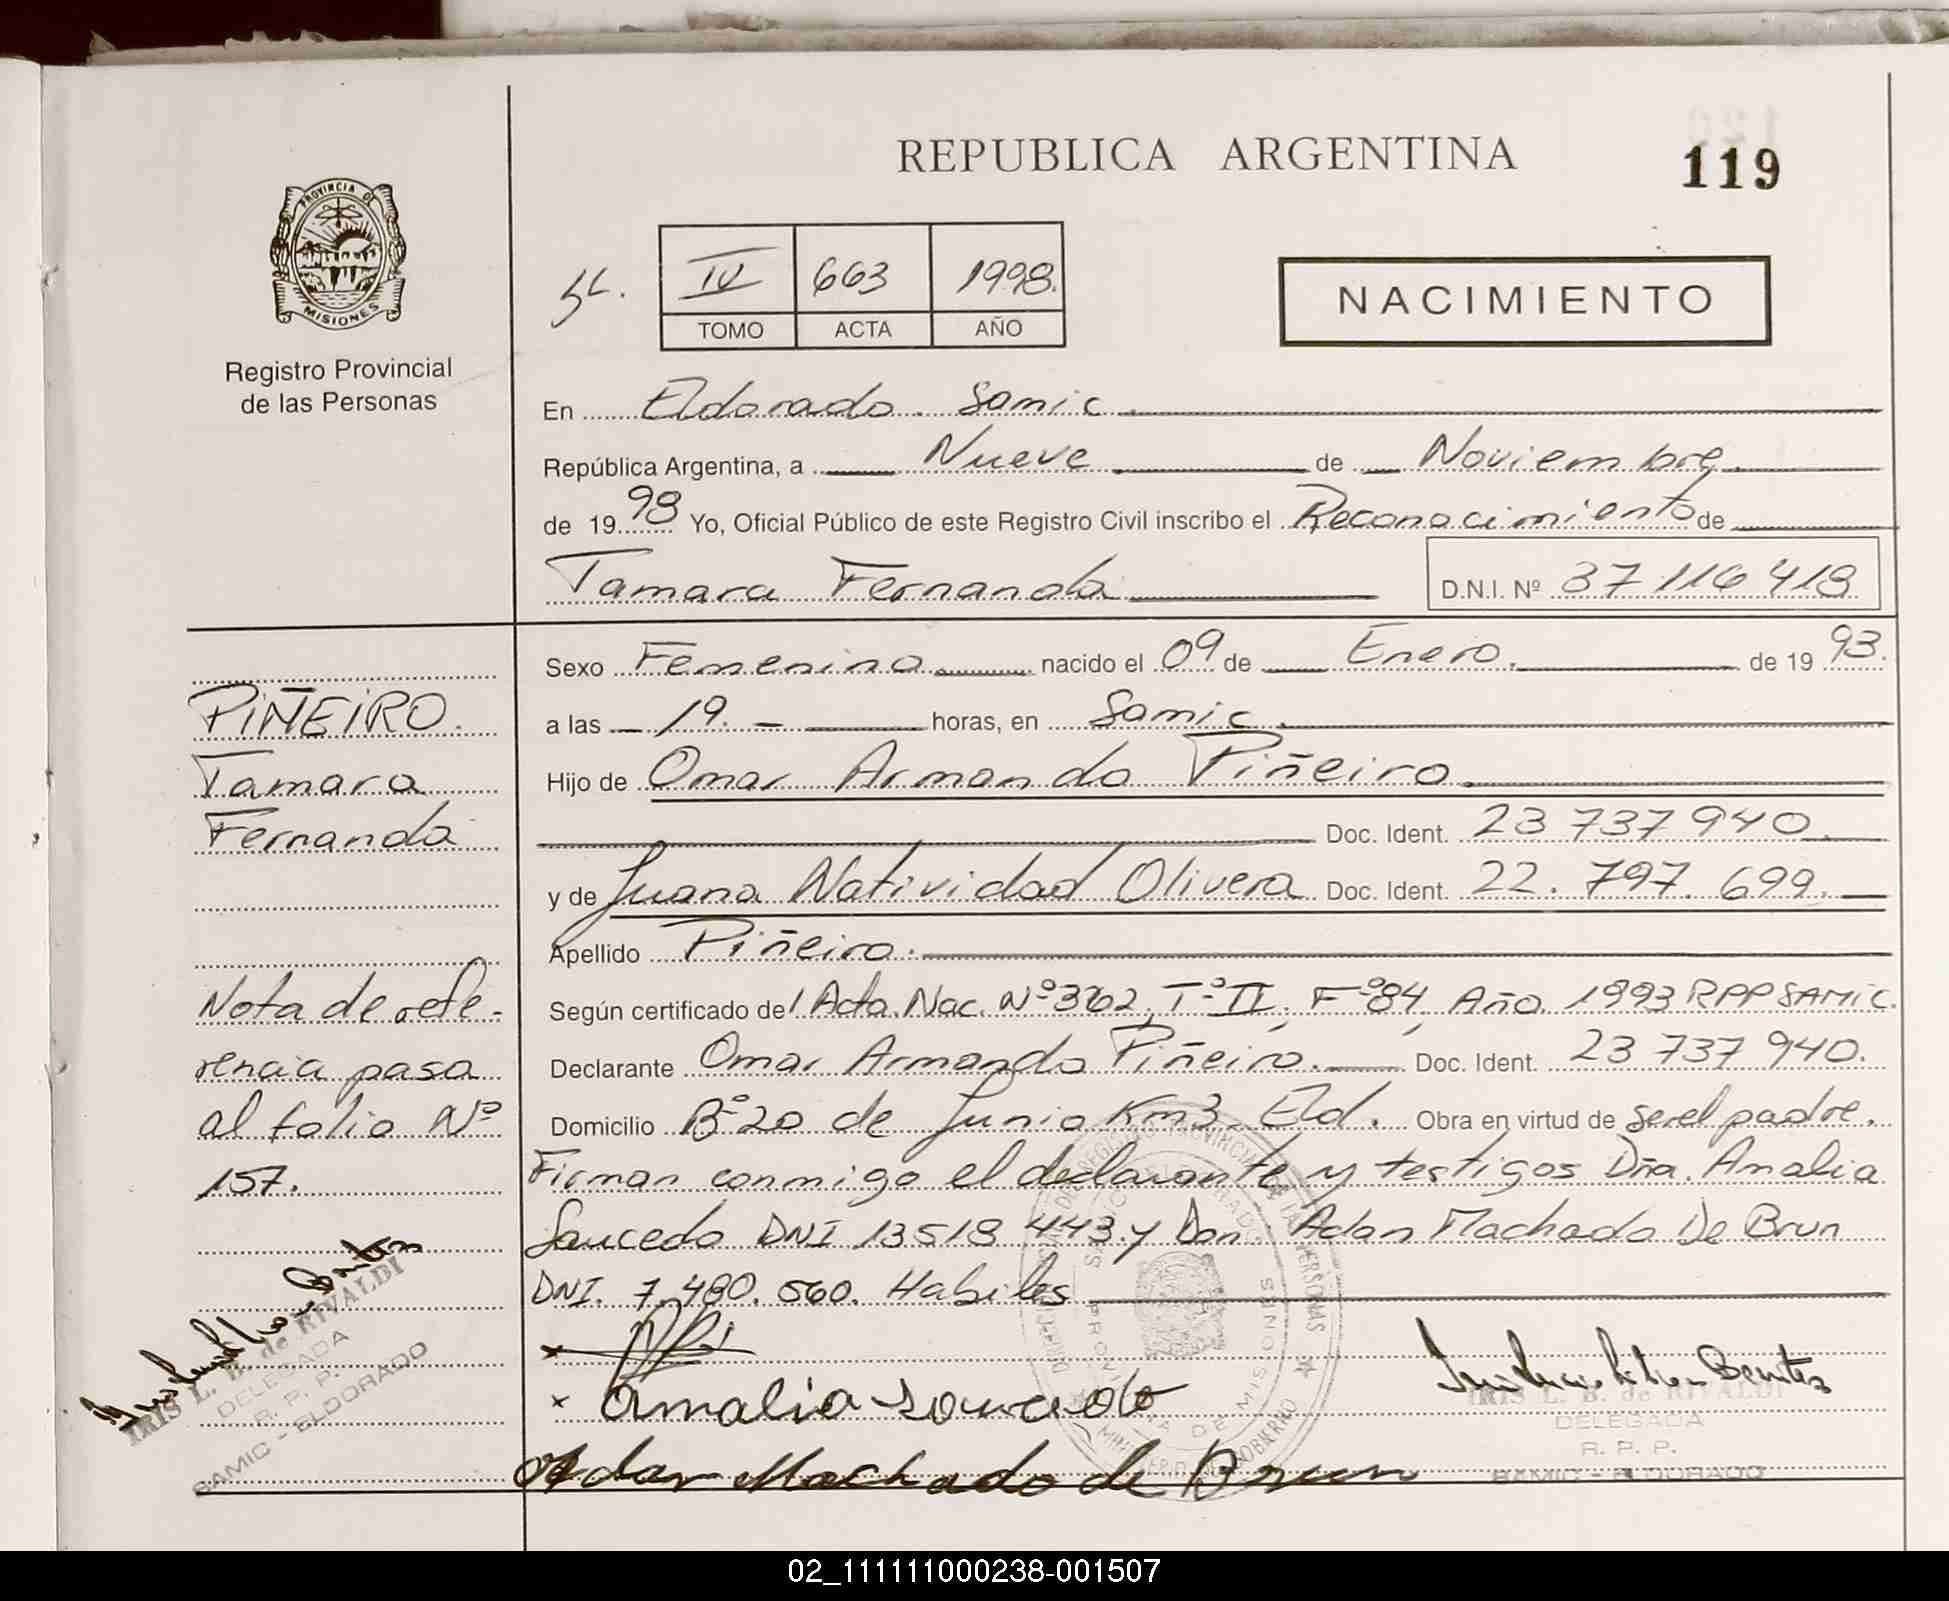 REPUBLICA ARGENTINA
119
PROVINCIA DE
MISIONES
Registro Provincial
de las Personas
IV 663 1998.
TOMO ACTA AÑO
NACIMIENTO
En Eldorado. Samic.
República Argentina, a Nueve de Noviembre.
de 1998 Yo, Oficial Público de este Registro Civil inscribo el Reconocimiento de
Tamara Fernanda
D.N.I. Nº 37 116 418
Sexo Femenino nacido el 09 de Enero. de 1993.
PIÑEIRO.
a las 19. - horas, en Samic.
Tamara
Hijo de Omar Armando Piñeiro.
Fernanda
Doc. Ident. 23 737 940.
y de Juana Natividad Olivera Doc. Ident. 22. 797. 699.
Apellido Piñeiro.
Nota de refe-
Según certificado de Acta. Nac. Nº 362, Tº II, Fº 84, Año 1993 RPP SAMIC.
rencia pasa
Declarante Omar Armando Piñeiro. Doc. Ident. 23 737 940.
al folio Nº
Domicilio Bº 20 de Junio Km3 Eld. Obra en virtud de ser el padre.
157.
Firman conmigo el declarante y testigos Dña. Amalia
Saucedo DNI 13518 443 y Don Adan Machado De Brun
DNI. 7 480. 560. Habiles
x
x Amalia Saucedo
Adan Machado de Brun
IRIS L. B. de RIVALDI
DELEGADA
R. P. P.
SAMIC - ELDORADO
IRIS L. B. de RIVALDI
DELEGADA
R. P. P.
SAMIC - ELDORADO
02_111111000238-001507